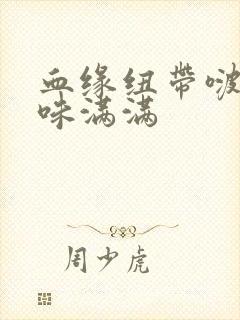 血缘纽带啵
咪满满
周少虎